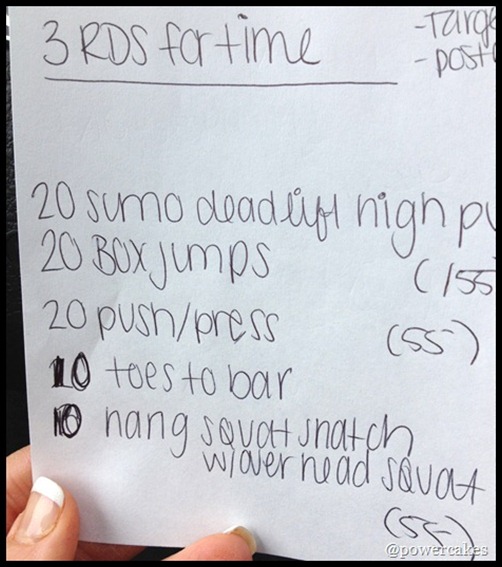 3 RDS for time
- Targe
- post
20 sumo deadlift high pu
(/55
20 Box jumps
20 push/press
(55)
10 toes to bar
10 hang squat snatch
w/overhead squat
(55)
@powercakes